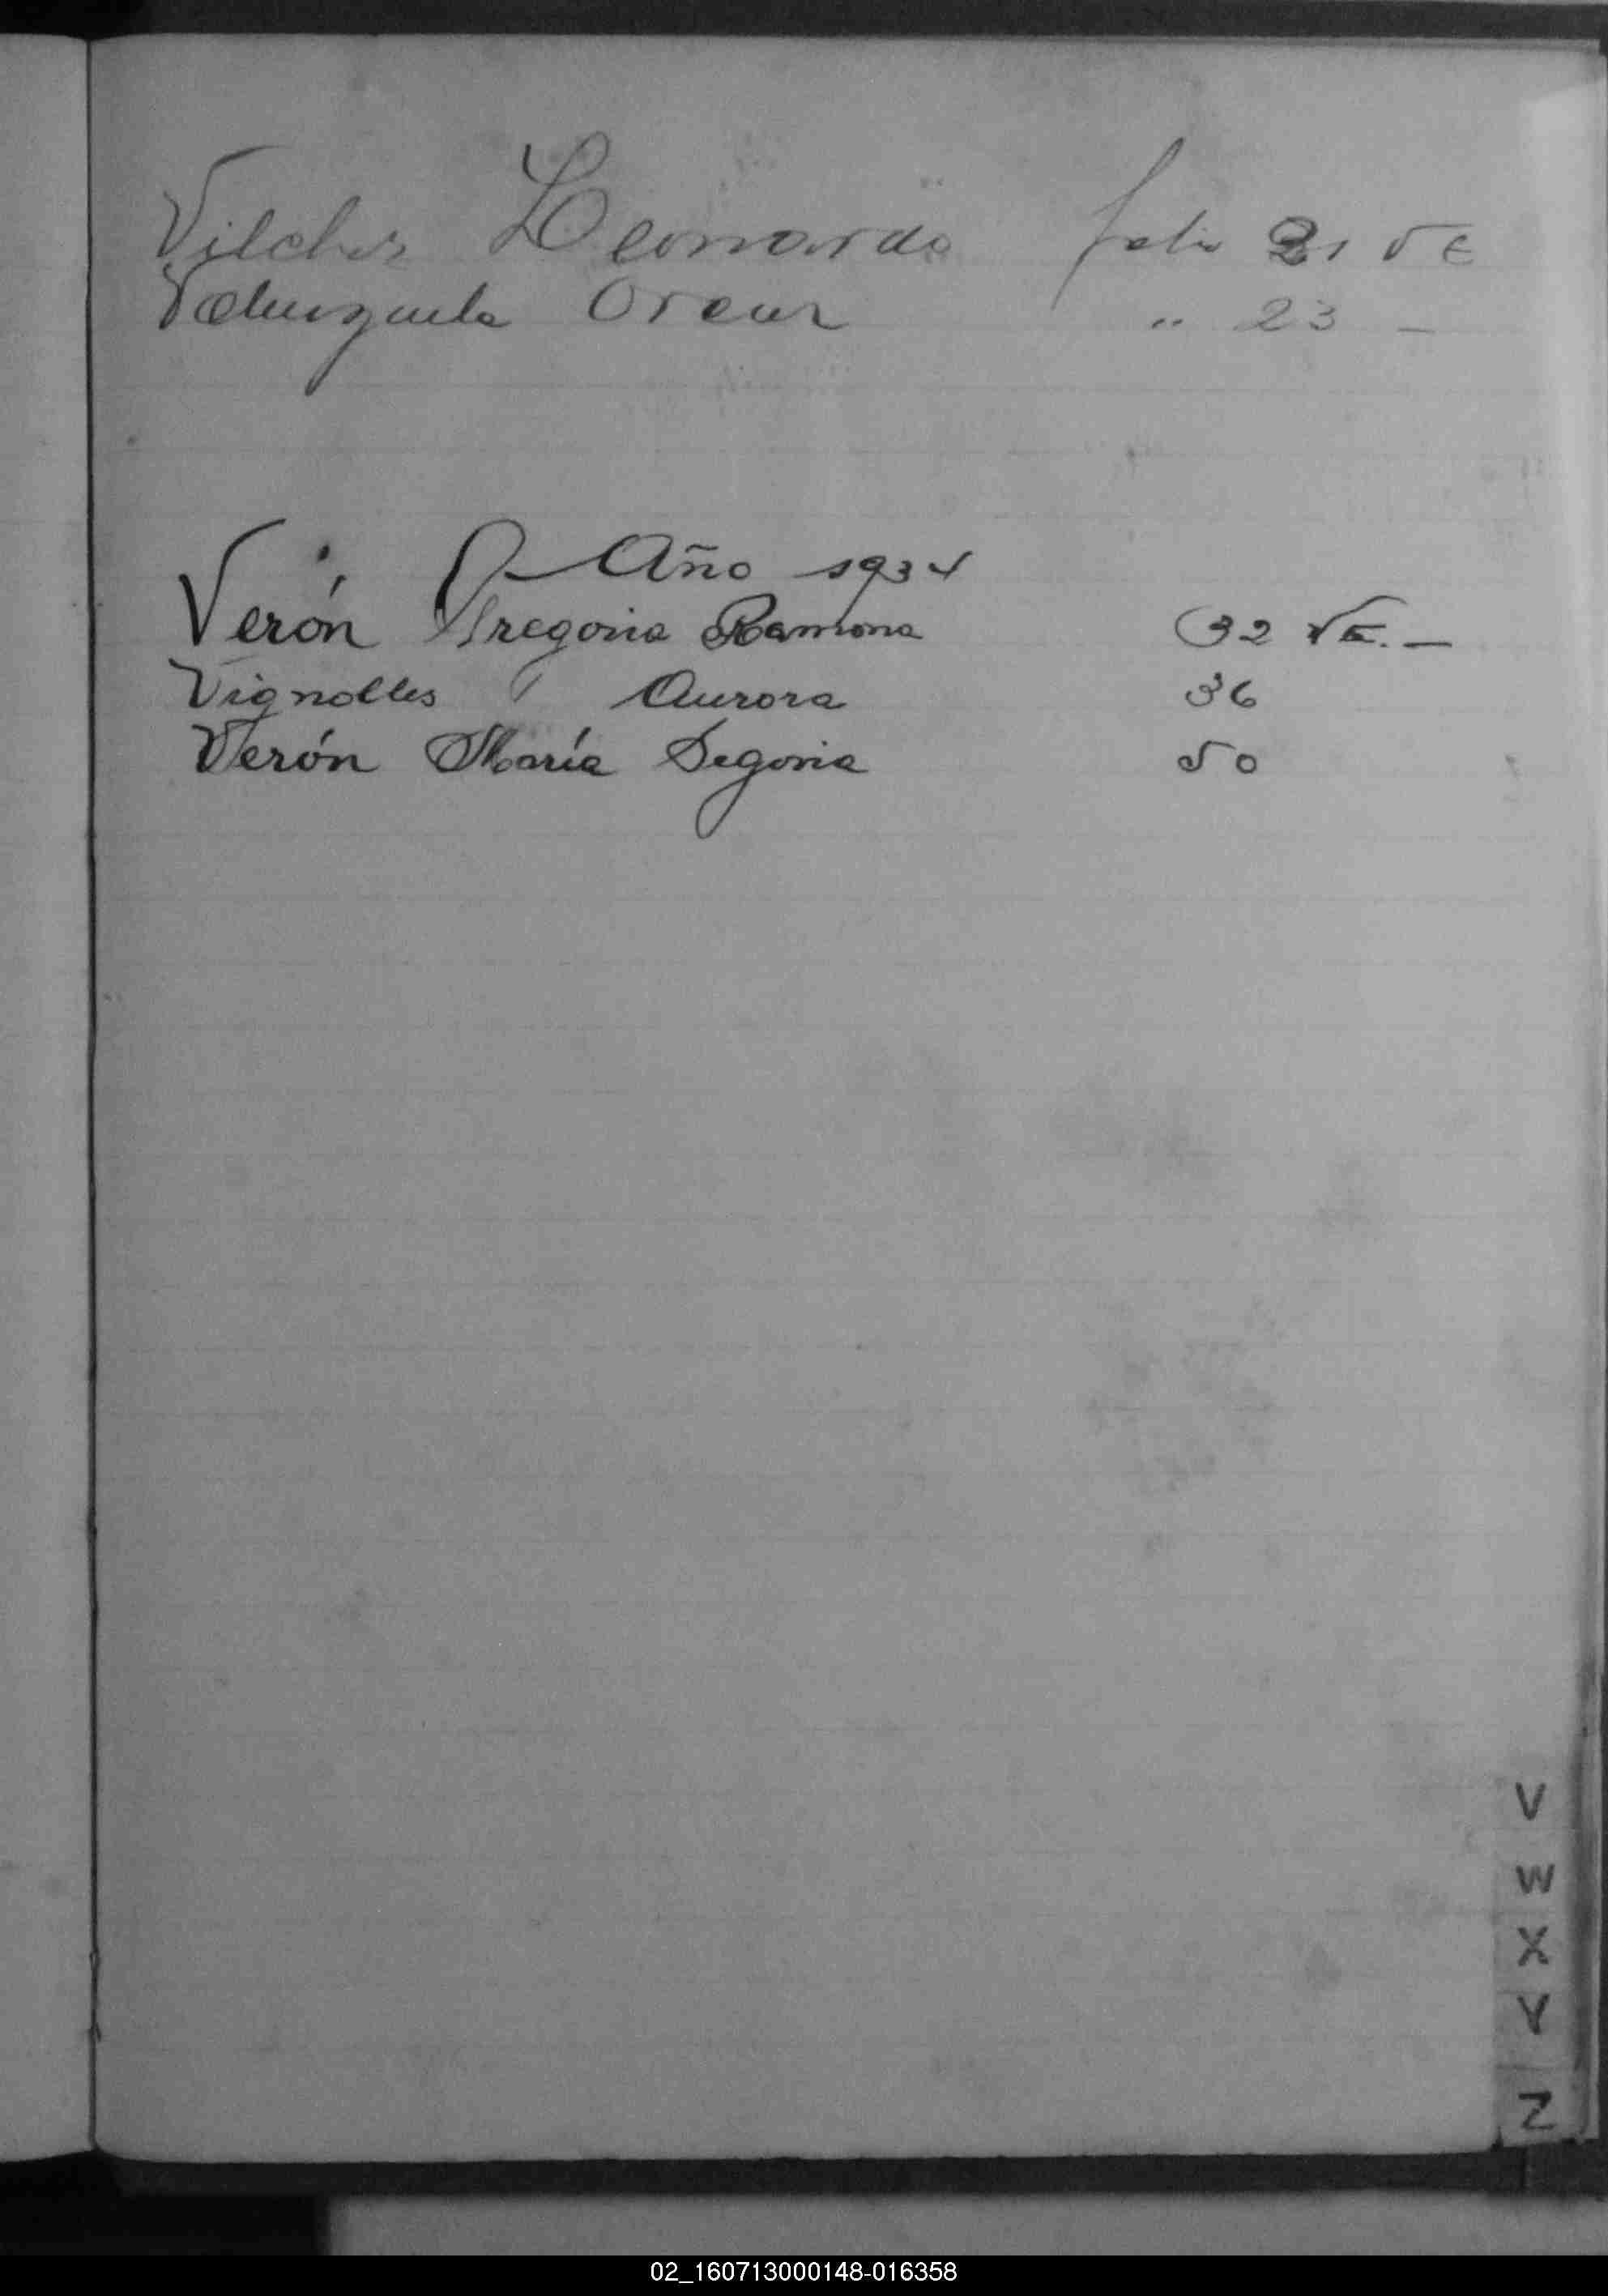 Vilches Leonardo folio 21 v E
Valenzuela Oscar " 23 –
Año 1934
Verón Gregoria Ramona 32 vE. –
Vignolles Aurora 36
Verón María Segovia 50
V
W
X
Y
Z
02_160713000148-016358